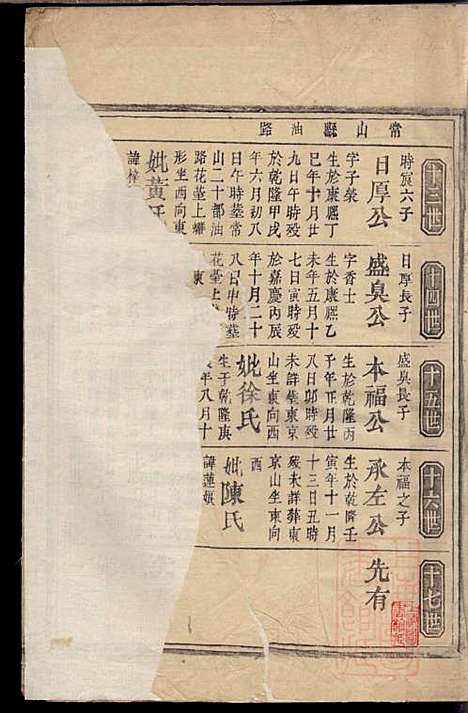 常山縣油路
十三世
時宸六子
日厚公
字子榮
生於康熙丁
巳年十月廿
九日午時歿
於乾隆甲戌
年六月初八
日午時塟常
山二十都油
路花荎上塘
形坐西向東
妣黃氏
十四世
日厚長子
盛臭公
字香士
生於康熙乙
未年五月十
七日寅時歿
於嘉慶丙辰
年十月二十
八日申時塟
花荎上
東
十五世
盛臭長子
本福公
生於乾隆丙
子年正月廿
八日卯時歿
未詳塟東京
山坐東向西
妣徐氏
生于乾隆庚
年八月十
十六世
本福之子
承左公
生於乾隆壬
寅年十一月
十三日丑時
歿未詳葬東
京山坐東向
酉
妣陳氏
諱蓮娥
十七世
先有